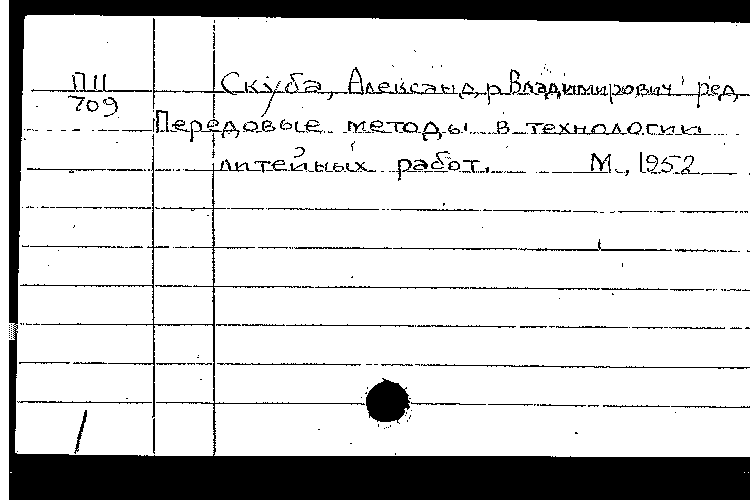 ПII
709
Скуба, Александр Владимирович ред.
Передовые методы в технологии
литейных работ. М., 1952